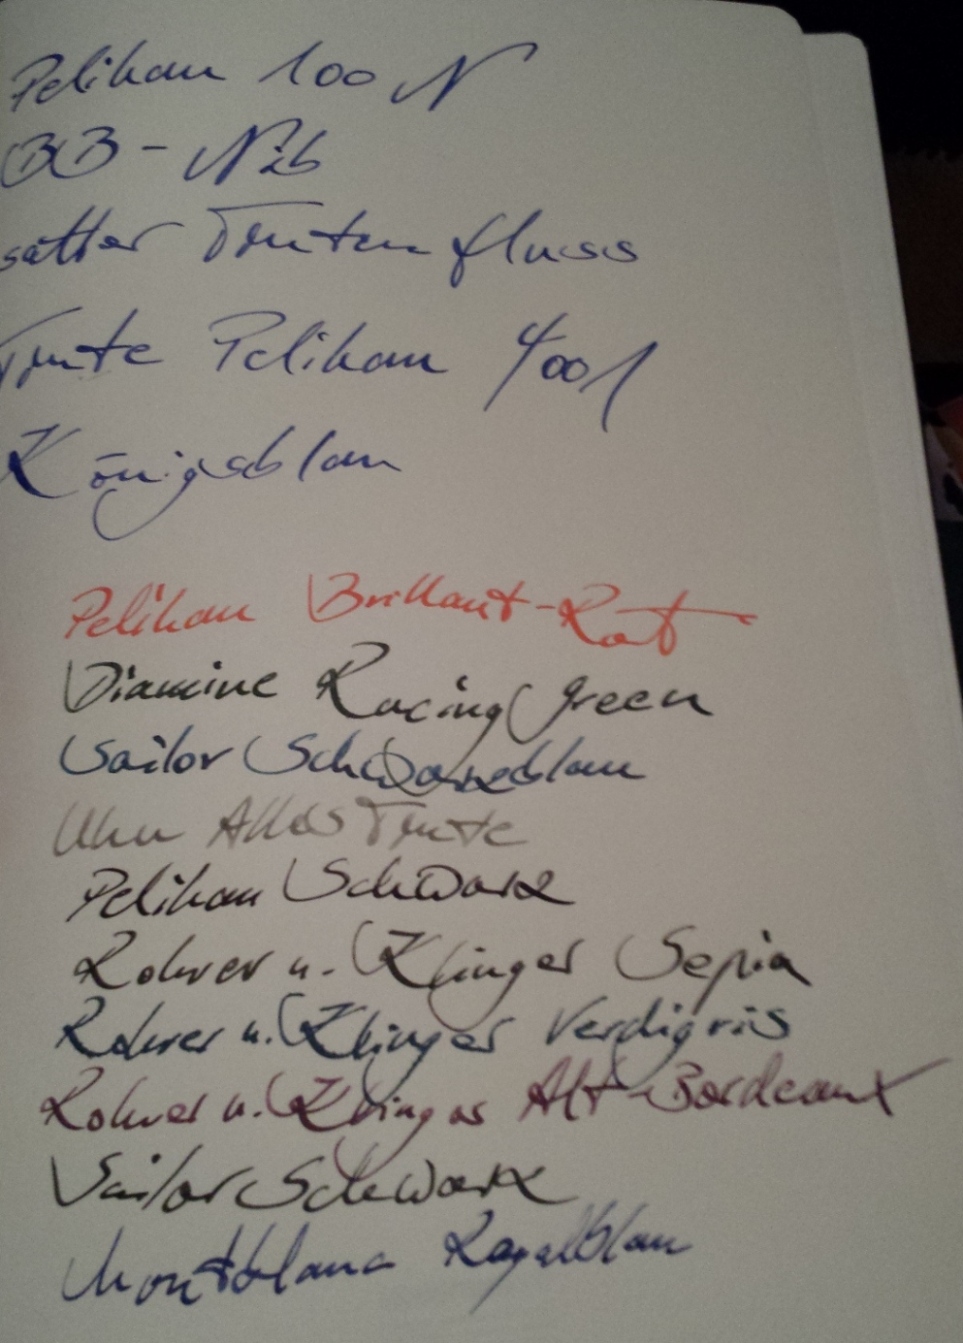 Pelikan 100 N
BB - Nib
satter Tintenfluss
Tinte Pelikan 4001
Königsblau
Pelikan Brillant-Rot
Diamine Racing Green
Sailor Schwarzblau
Tinte
Pelikan Schwarz
Rohrer u. Klinger Sepia
Rohrer u. Klinger Verdigris
Rohrer u. Klinger Alt-Bordeaux
Sailor Schwarz
Montblanc Royalblau